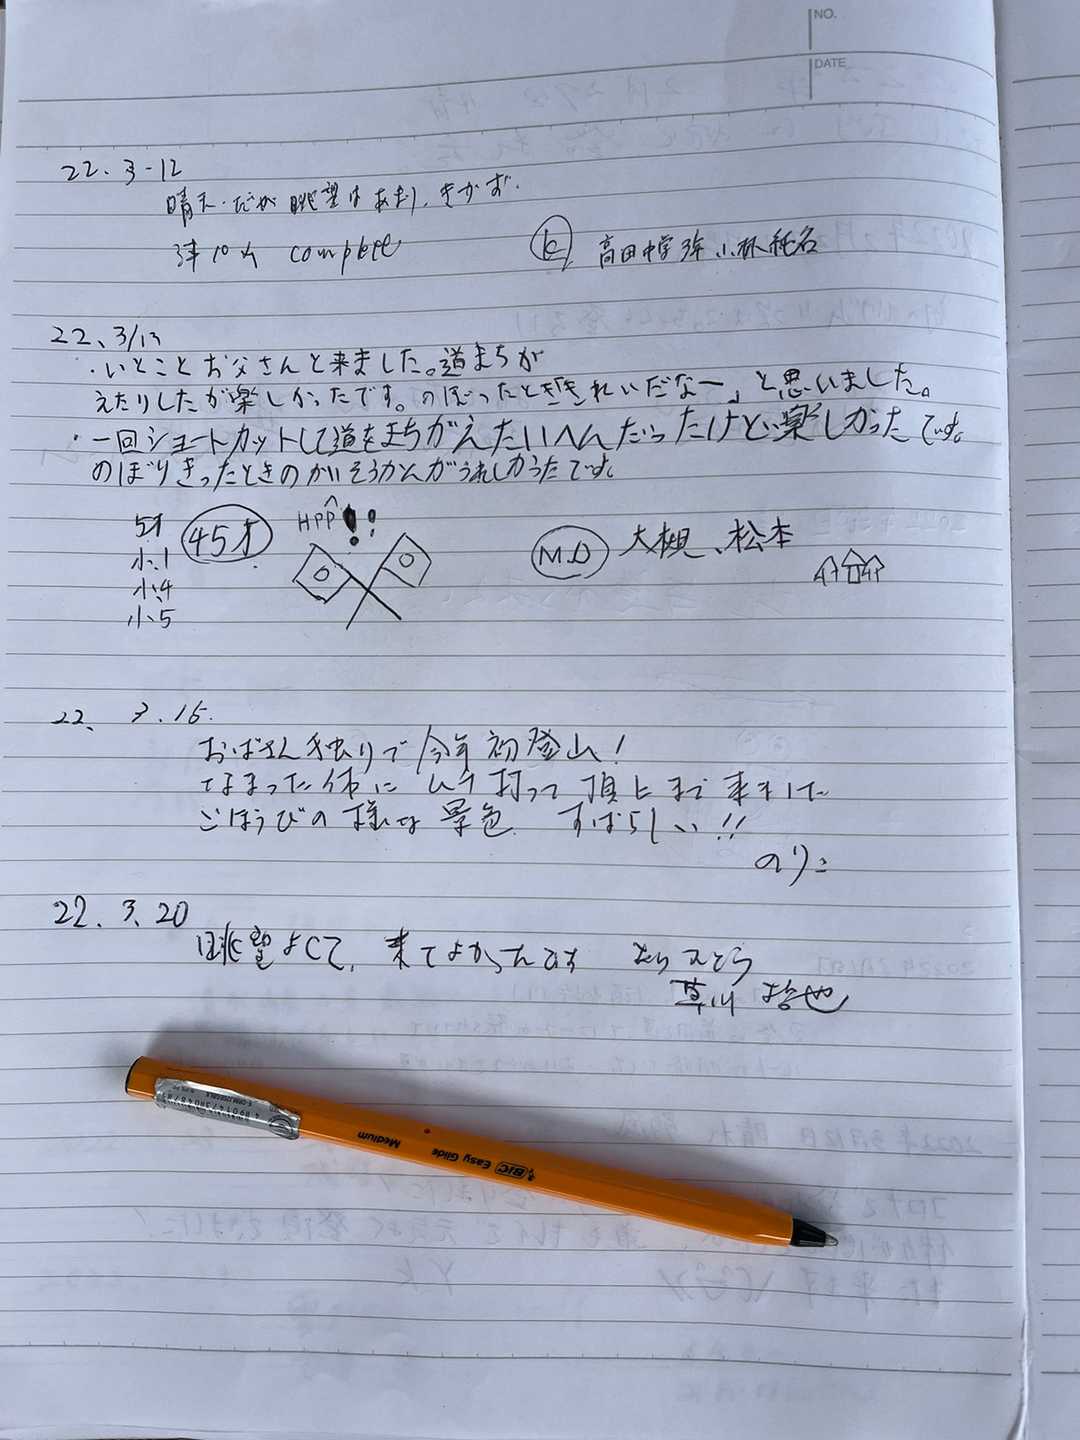 NO.
DATE
22. 3-12
晴天.だが眺望はあまり、きかず.
complete
K 高田中学 小林
22、3/13
・いとことお父さんと来ました。道まちが
えたりしたが楽しかったです。のぼったとき「きれいだなー」と思いました。
・一回ショートカットして道をまちがえたいへんだったけど楽しかったです。
のぼりきったときのかいそうかんがうれしかったです。
5才
小.1
小.4
小.5
45才
HPP !!
M.D 大槻、松本
22、 3.15.
おばさん独りで今年初登山!
なまった体にムチ打って頂上まで来ました
ごほうびの様な景色 すばらしい!!
のりこ
22.3.20
眺望よくて、来てよかったです
草川 哲也
BIC Easy Glide Medium